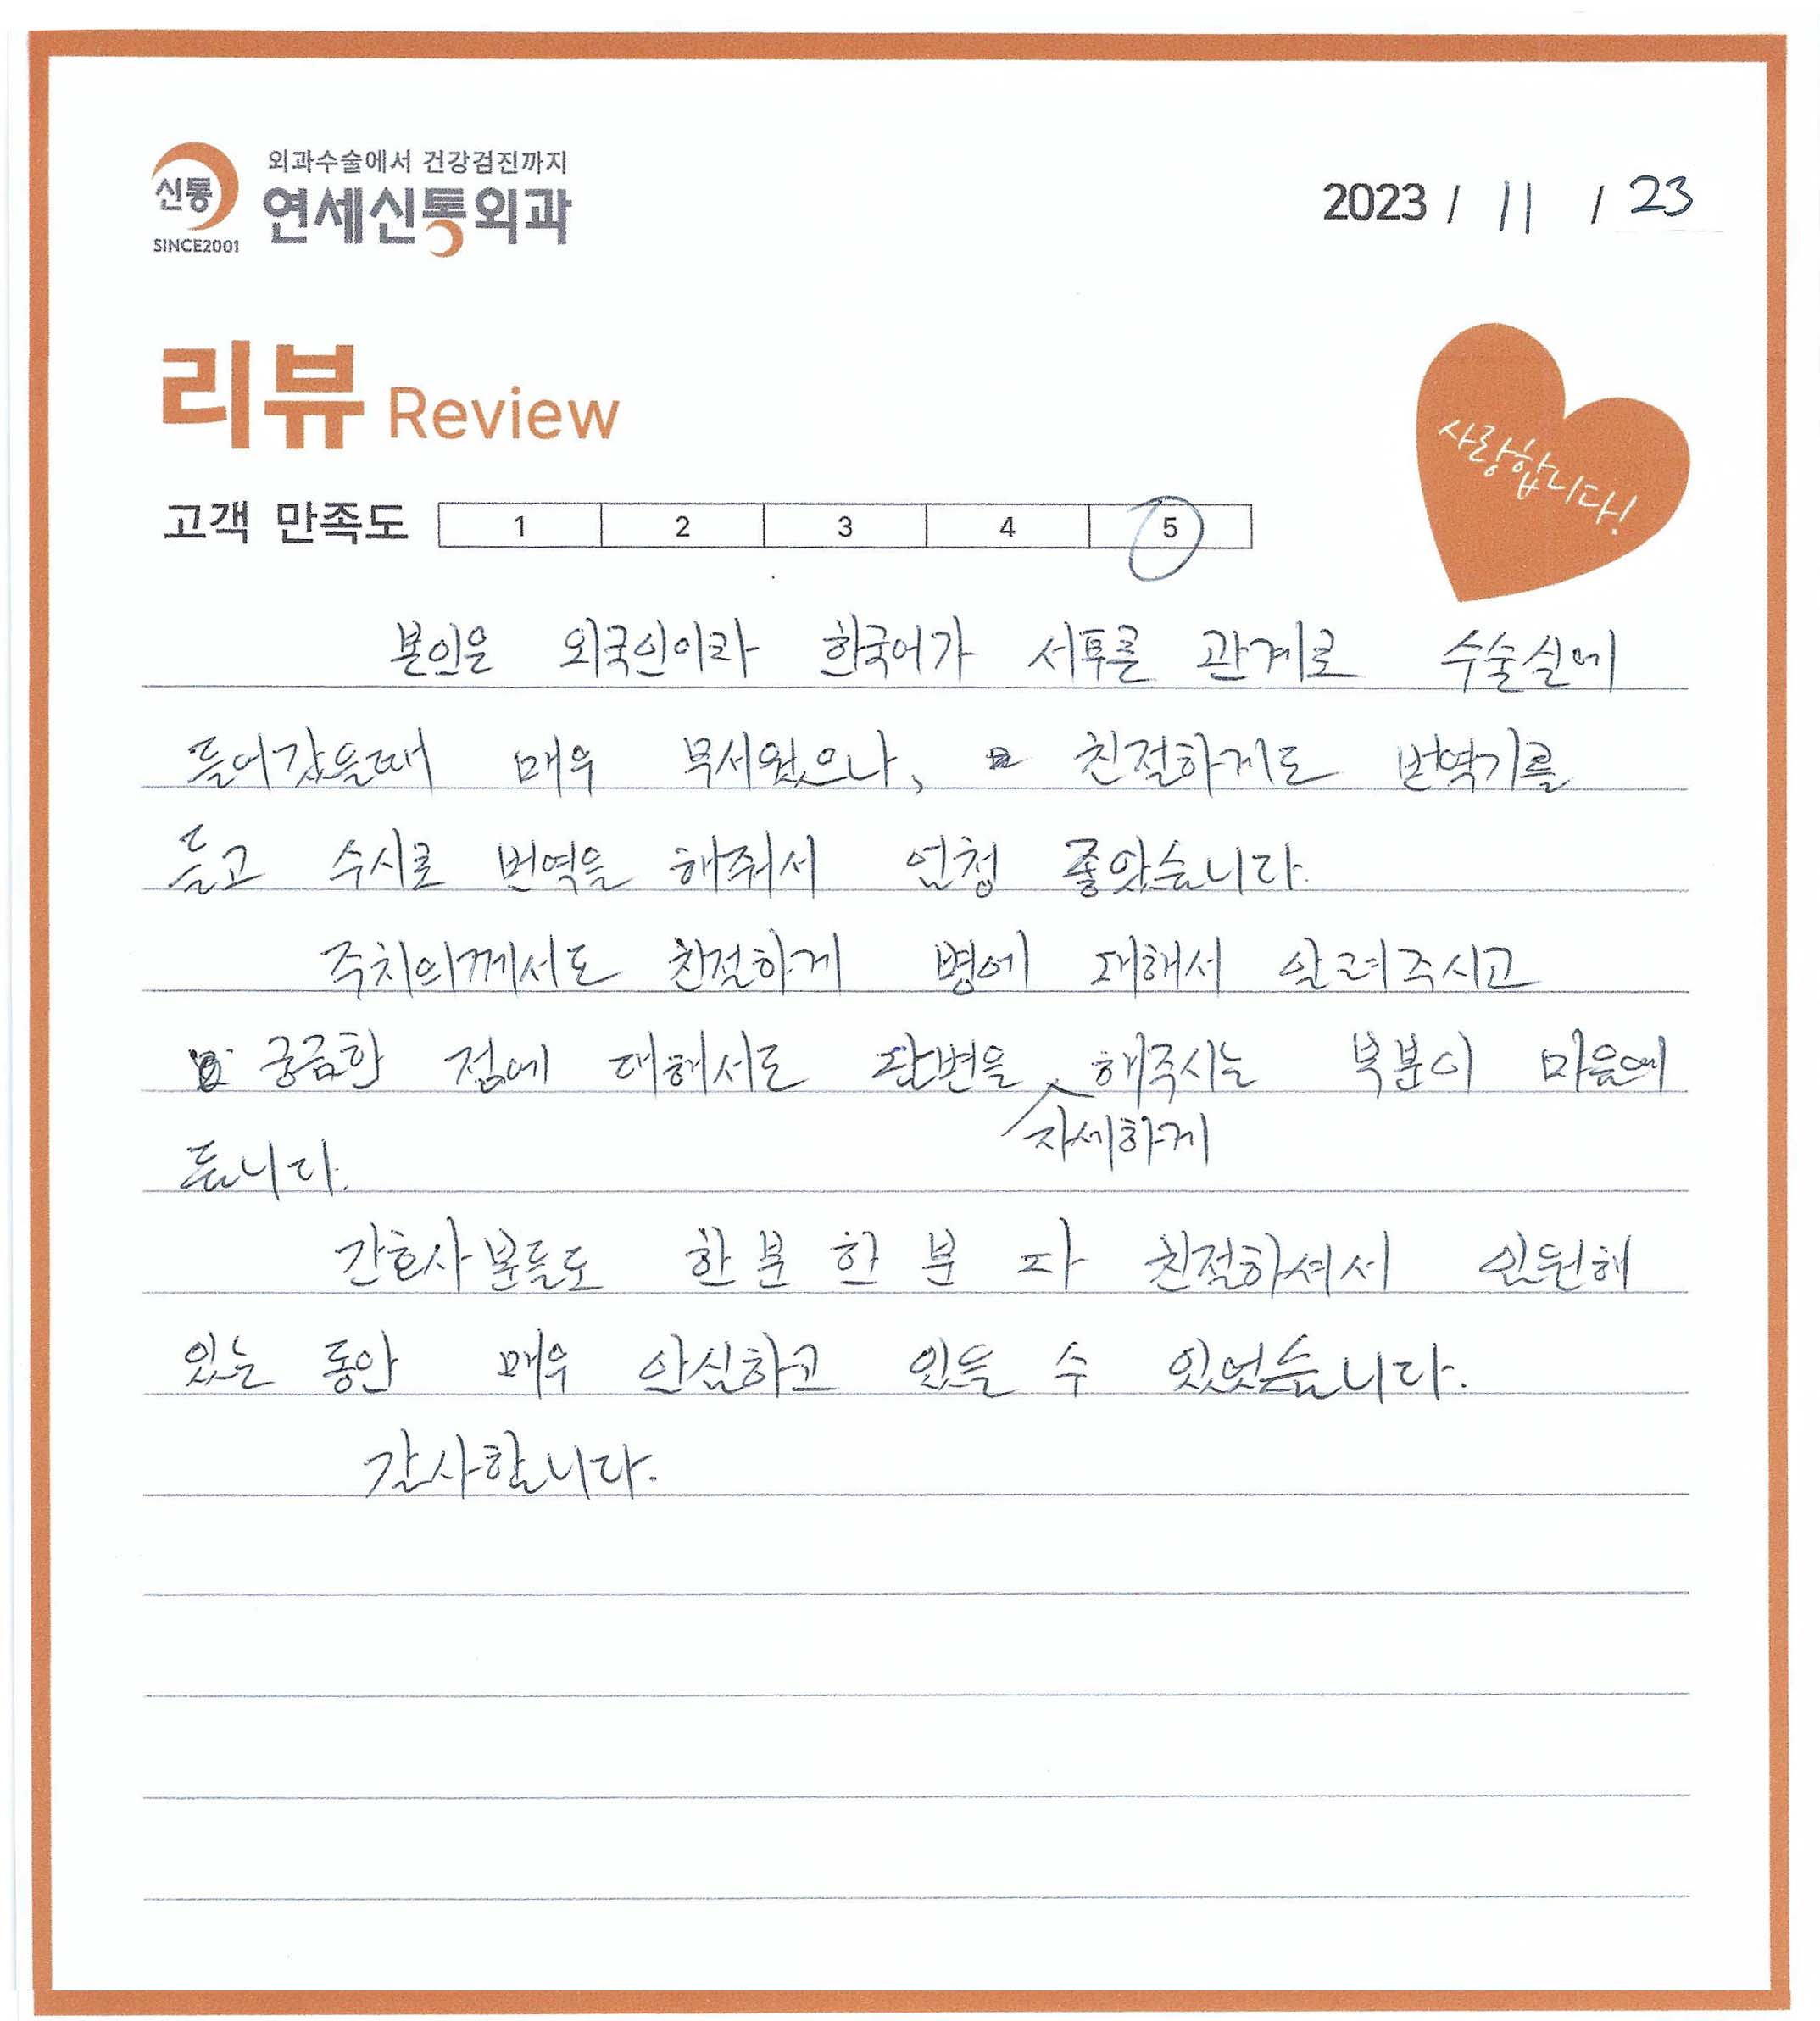 외과수술에서 건강검진까지
신통
연세신통외과
SINCE2001
2023 / 11 / 23
리뷰 Review
사랑합니다!
고객 만족도 1 2 3 4 5
본인은 외국인이라 한국어가 서투른 관계로 수술실에
들어갔을때 매우 무서웠으나, 친절하게도 번역기를
들고 수시로 번역을 해줘서 엄청 좋았습니다.
주치의께서도 친절하게 병에 대해서 알려주시고
궁금한 점에 대해서도 답변을 해주시는 부분이 마음에
자세하게
듭니다.
간호사분들도 한분 한분 다 친절하셔서 입원해
있는 동안 매우 안심하고 있을 수 있었습니다.
감사합니다.